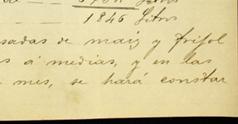 1846 Litros
sadas de maiz y frijol
s á medias, y en las
mes, se hará constar